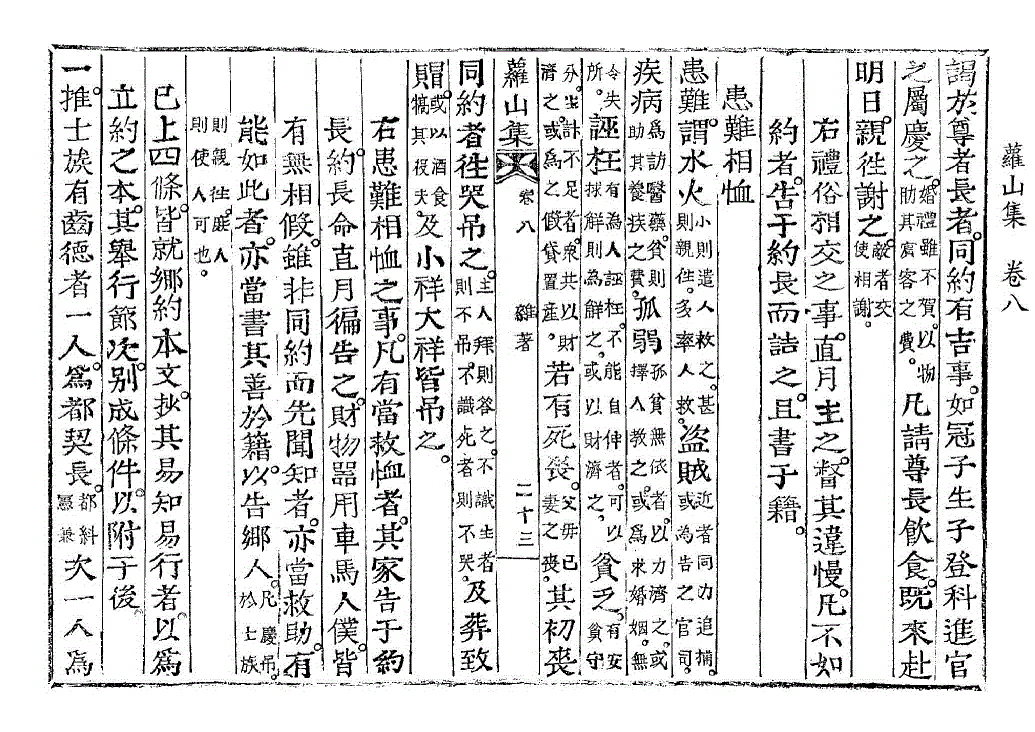 蘿山集 卷八
謁於尊者長者。同約有吉事。如冠子生子登科進官
之屬慶之。婚禮雖不賀。以物助其賓客之費。凡請尊長飮食。旣來赴
明日。親徃謝之。敵者交使相謝。
右禮俗相交之事。直月主之。督其違慢。凡不如
約者。告于約長而詰之。且書于籍。
患難相恤
患難。謂水火小則遣人救之。甚則親徃。多率人救。盜賊近者同力追捕。或爲告之官司。
疾病爲訪醫藥。貧則助其養疾之費。孤弱孤貧無依者。以力濟之。或擇人敎之。或爲求婚姻。無
令失所。誣枉有爲人誣枉。不能自伸者。可以救解則爲解之。或以財濟之。貧乏。有安貧守
分。生計不足者。衆共以財濟之。或爲之假貸置産。若有死喪。父母己妻之喪。其初喪
蘿山集 卷八 雜著 二十三
同約者徃哭吊之。主人拜則答之。不識生者則不吊。不識死者則不哭。及葬致
賵或以酒食犒其役夫。及小祥大祥皆吊之。
右患難相恤之事。凡有當救恤者。其家告于約
長。約長命直月徧告之。財物器用車馬人僕。皆
有無相假。雖非同約而先聞知者。亦當救助。有
能如此者。亦當書其善於籍。以告鄕人。凡慶吊。於士族
則親徃。庭人則使人可也。
已上四條。皆就鄕約本文。抄其易知易行者。以爲
立約之本。其擧行節次。別成條件。以附于後。
一。推士族有齒德者一人。爲都契長。都糾憲兼次一人爲